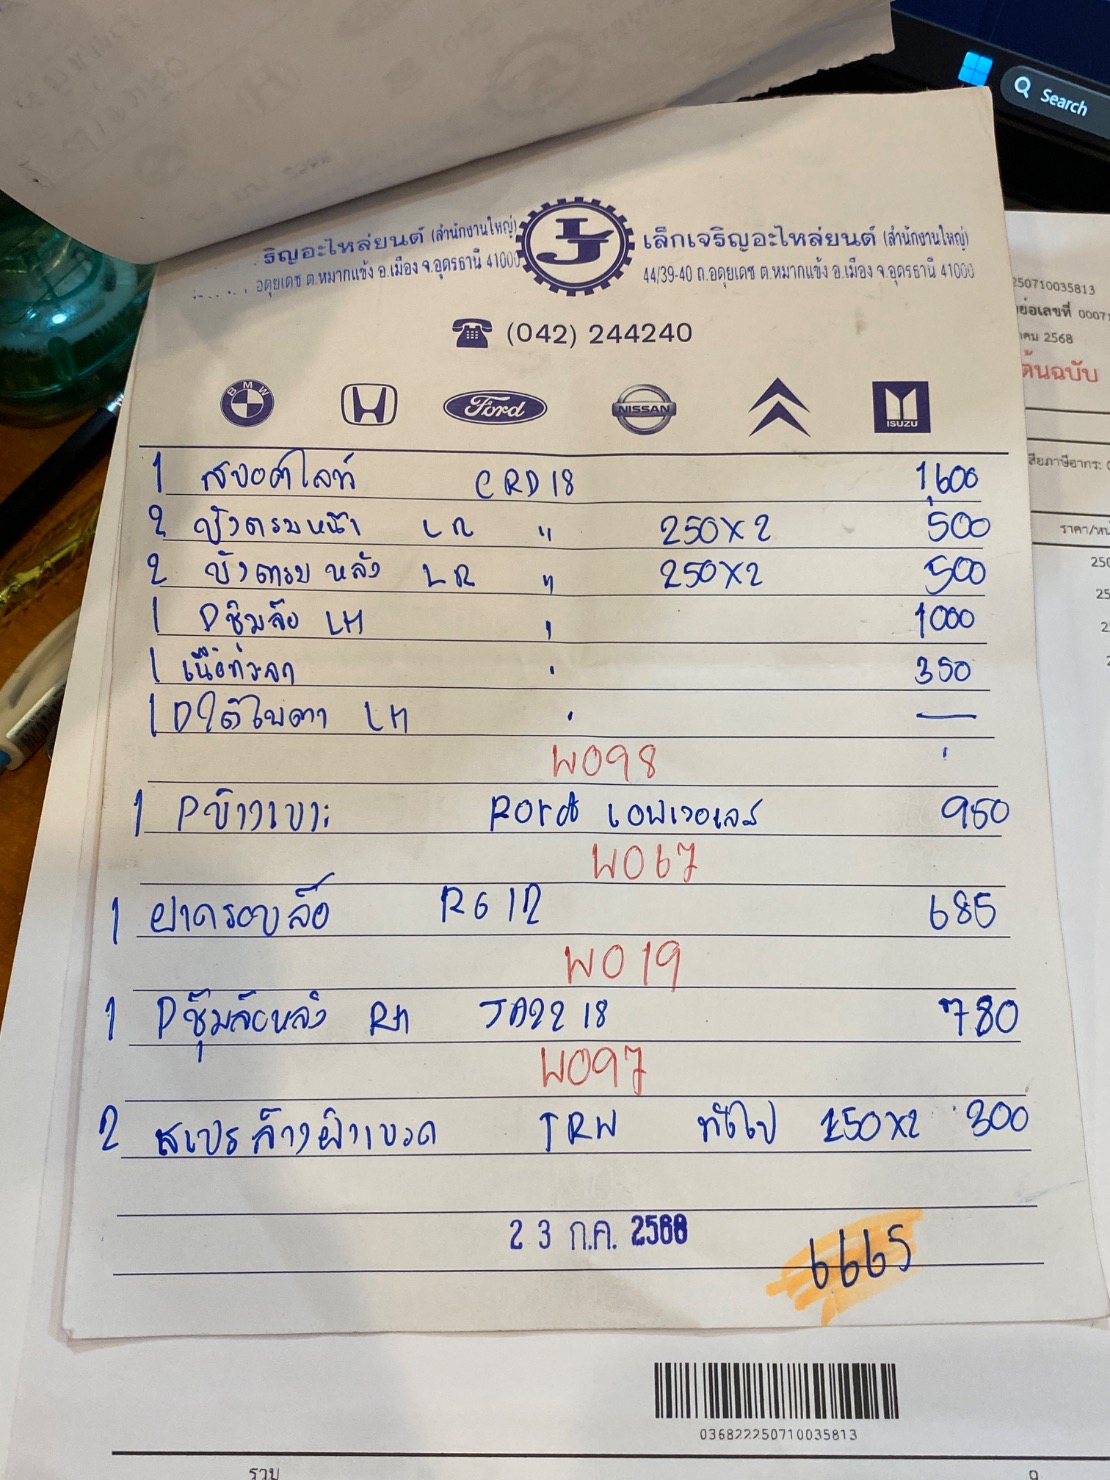 Search
ริญอะไหล่ยนต์ (สำนักงานใหญ่)
อดุยเดช ต.หมากแข้ง อ.เมือง จ.อุดรธานี 41000
LJ
เล็กเจริญอะไหล่ยนต์ (สำนักงานใหญ่)
44/39-40 ถ.อดุยเดช ต.หมากแข้ง อ.เมือง จ.อุดรธานี 41000
(042) 244240
BMW Ford NISSAN ISUZU
1 สปอตไลท์ CRD18 1,600
2 บังตรมหน้า LR " 250x2 500
2 บังตรม หลัง LR " 250x2 500
1 Pซุ้มล้อ LH " 1000
1 350
1 LH —
W098
1 Pข้างเบาะ 950
W067
1 ฝาครอบล้อ RG1R 685
W019
1 Pซุ้มล้อหลัง RH JA2218 780
W097
2 สเปร ล้างผ้าเบรค TRW ทั่วไป 150x2 300
23 ก.ค. 2568
6665
250710035813
ย่อเลขที่ 0007
คม 2568
ต้นฉบับ
สียภาษีอากร:
ราคา/หน
036822250710035813
รวม
9